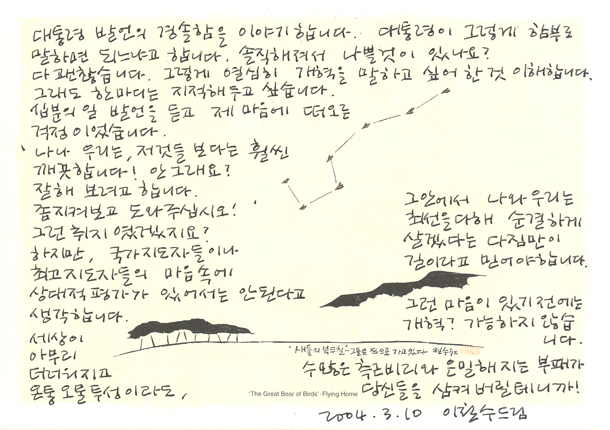 대통령 발언의 경솔함을 이야기합니다. 대통령이 그렇게 함부로
말하면 되느냐고 합니다. 솔직해져서 나쁠것이 있나요?
다 괜찮습니다. 그렇게 열심히 개혁을 말하고 싶어 한 것 이해합니다.
그래도 한마디는 지적해두고 싶습니다.
십분의 일 발언을 듣고 제 마음에 떠오른
걱정이었습니다.
'나나 우리는, 저것들 보다는 훨씬
깨끗합니다! 안그래요?
잘해 보려고 합니다.
좀지켜보고 도와주십시오!'
그런 취지였겠지요?
하지만, 국가지도자들이나
최고지도자들의 마음속에
상대적 평가가 있어서는 안된다고
생각합니다.
세상이
아무리
더러워지고
온통 오물투성이라도,
그안에서 나와 우리는
최선을다해 순결하게
살겠다는 다짐만이
길이라고 믿어야합니다.
그런 마음이 있기전에는
개혁? 가능하지 않습
니다.
수많은 측근비리와 은밀해지는 부패가
당신들을 삼켜버릴테니까!
'새들의 북두칠-그들은 집으로 가고있다 철수
'The Great Bear of Birds'- Flying Home
2004. 3. 10 이철수드림